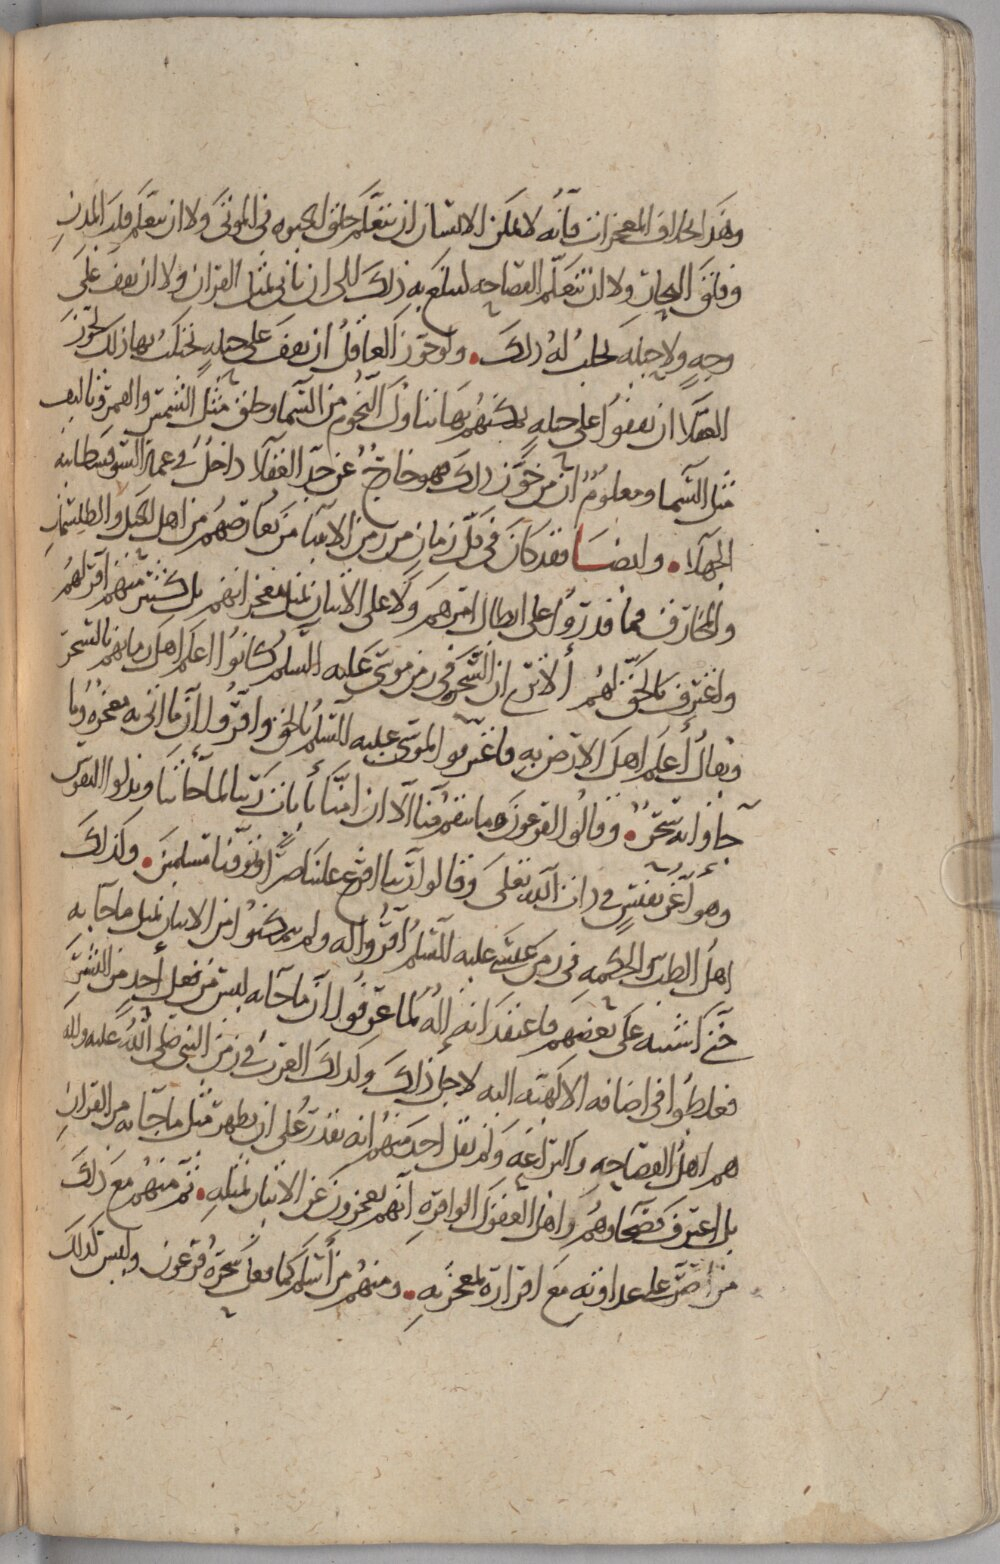 وهذا بخلاف المعجزات فانه لا يمكن الانسان ان يتعلم خلق الحيوه في الموتى ولا ان يتعلم قلب المدن
وفلق البحار ولا ان يتعلم الفصاحه ليبلغ به ذلك الى ان ياتي بمثل القران ولا ان يقف على
وجهٍ ولا حيله تجلب له ذلك. ولو جوّز العاقل ان يقف على حيلهٍ تمكّنه بها ذلك لجوّز
العقلا ان يقفوا على حيلهٍ يمكنهم بها تناول النجوم من السّما وخلق مثل الشمس والقمر وتاليف
مثل السّما ومعلومٌ ان من جوّز ذلك فهو خارجٌ عن حدّ العقلا داخل في عمار السوفسطائيه
الجهلا. وايضا فقد كان في كل زمان من زمن الانبيا من يعارضهم من اهل الحيل والطلسمات
والمخارق فما قدروا على ابطال امرهم ولا على الاتيان بمثل معجزاتهم بل كثير منهم اقر لهم
واعترف بالحق لهم ألا ترى ان السّحره في زمن موسى عليه السلم كانوا اعلم اهل زمانهم بالسّحر
ويقال أعلم اهل الارض به فاعترفوا لموسى عليه السّلم بالحق واقرّوا ان ما اتى به معجزه وما
جآوا به سحرٌ. وقالوا لفرعون وما تنقم منّا الا ان امنّا بايات ربّنا لما جاتنا وبذلوا النفوس
وهو أعز نفيسٍ في ذات الله تعلى وقالوا ربّنا افرغ علينا صبرًا وتوفّنا مسلمين. وكذلك
اهل الطب والحكمه في زمن عيسى عليه السّلم اقرّوا له ولم يتمكنوا من الاتيان بمثل ما جآ به
حتى اشتبه على بعضهم فاعتقد انه إلهٌ لما عرفوا ان ما جآ به ليس من فعل أحدٍ من البشر
فغلطوا في اضافه الالهيه اليه لاجل ذلك وكذلك العرب في زمن النبي صلى الله عليه واله
هم اهل الفصاحهِ والبلاغه ولم يقل احد منهم انه يقدر على ان يظهر مثل ما جآ به من القران
بل اعترف فصحاوهم واهل العقول الوافره انهم يعجزون عن الاتيان بمثلهِ. ثم منهم مع ذلك
من أصرّ على عداوته مع اقراره بمعجزتهِ. ومنهم من أسلم كما فعل سحرة فرعون وليس كذلك